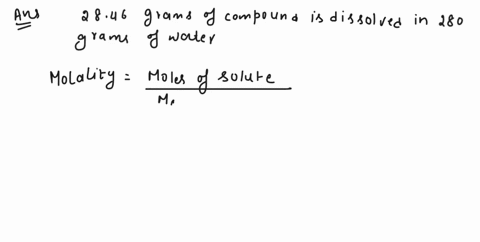 Ans 28.46 grams of compound is dissolved in 280
grams of water
Molality = Moles of solute
M